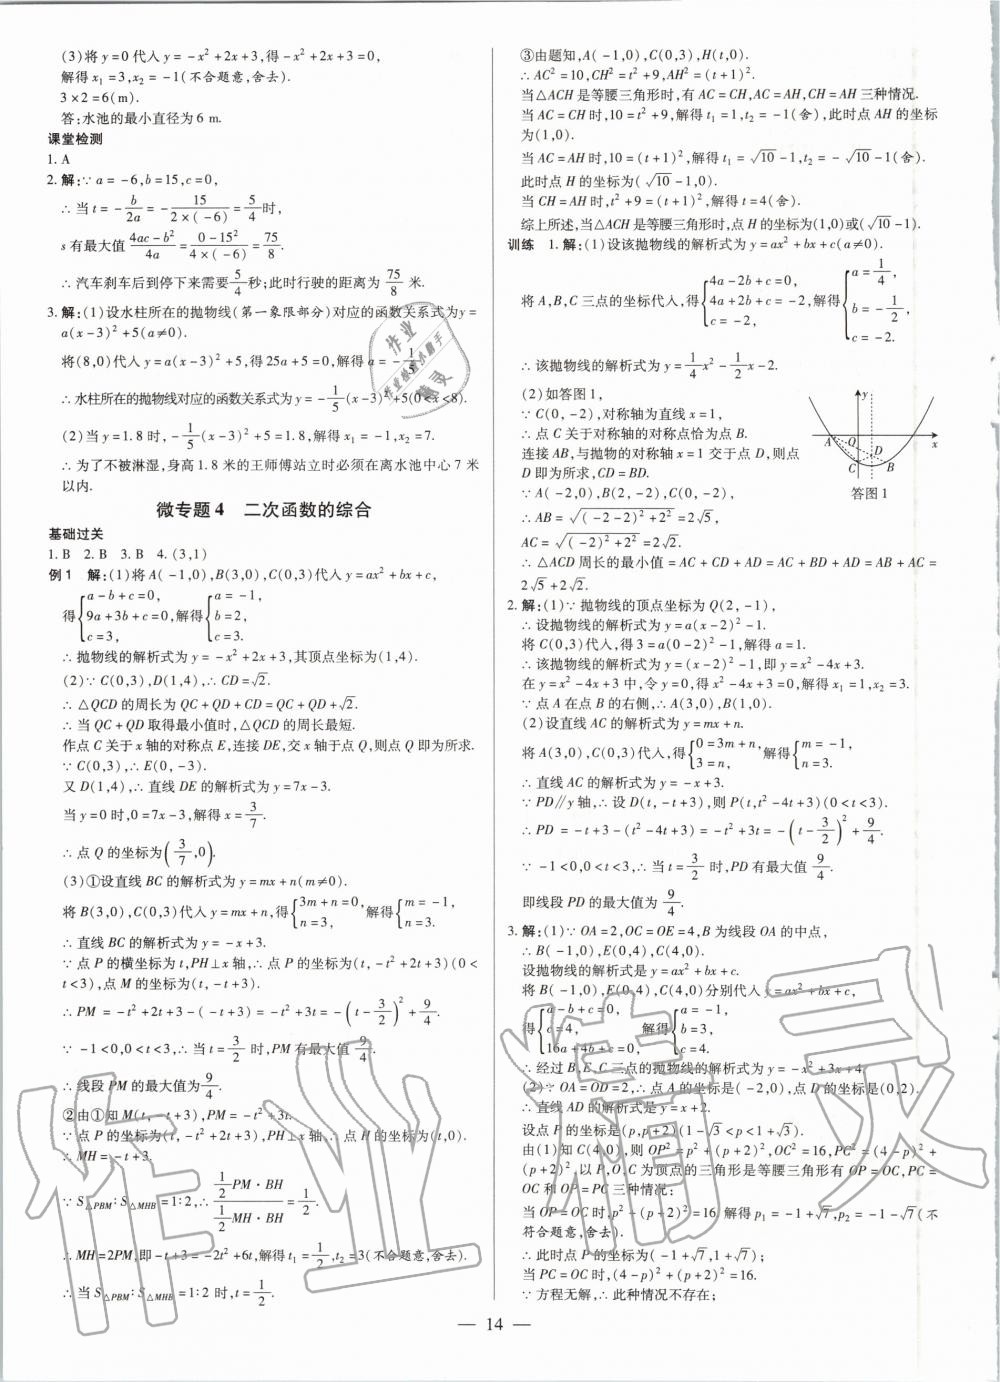 (3)将 y=0 代入 y=-x²+2x+3,得-x²+2x+3=0,
解得 x₁=3,x₂=-1(不合题意,舍去).
3×2=6(m).
答:水池的最小直径为 6 m.
课堂检测
1. A
2. 解:∵a=-6,b=15,c=0,
∴当 t=-b/2a=-15/(2×(-6))=5/4时,
s 有最大值(4ac-b²)/4a=(0-15²)/(4×(-6))=75/8.
∴汽车刹车后到停下来需要5/4秒;此时行驶的距离为75/8米.
3. 解:(1)设水柱所在的抛物线(第一象限部分)对应的函数关系式为y=
a(x-3)²+5(a≠0).
将(8,0)代入 y=a(x-3)²+5,得 25a+5=0,解得 a=-1/5.
∴水柱所在的抛物线对应的函数关系式为 y=-1/5(x-3)²+5(0<x<8).
(2)当 y=1.8 时,-1/5(x-3)²+5=1.8,解得 x₁=-1,x₂=7.
∴为了不被淋湿,身高 1.8 米的王师傅站立时必须在离水池中心 7 米
以内.
微专题 4 二次函数的综合
基础过关
1. B 2. B 3. B 4. (3,1)
例 1 解:(1)将 A(-1,0),B(3,0),C(0,3)代入 y=ax²+bx+c,
得{a-b+c=0, 9a+3b+c=0, c=3, 解得{a=-1, b=2, c=3.
∴抛物线的解析式为 y=-x²+2x+3,其顶点坐标为(1,4).
(2)∵C(0,3),D(1,4),∴CD=√2.
∴△QCD 的周长为 QC+QD+CD=QC+QD+√2.
∴当 QC+QD 取得最小值时,△QCD 的周长最短.
作点 C 关于 x 轴的对称点 E,连接 DE,交 x 轴于点 Q,则点 Q 即为所求.
∵C(0,3),∴E(0,-3).
又 D(1,4),∴直线 DE 的解析式为 y=7x-3.
当 y=0 时,0=7x-3,解得 x=3/7.
∴点 Q 的坐标为(3/7,0).
(3)①设直线 BC 的解析式为 y=mx+n(m≠0).
将 B(3,0),C(0,3)代入 y=mx+n,得{3m+n=0, n=3, 解得{m=-1, n=3.
∴直线 BC 的解析式为 y=-x+3.
∵点 P 的横坐标为 t,PH⊥x 轴,∴点 P 的坐标为(t,-t²+2t+3)(0<
t<3),点 M 的坐标为(t,-t+3).
∴PM=-t²+2t+3-(-t+3)=-t²+3t=-(t-3/2)²+9/4.
∵-1<0,0<t<3,∴当 t=3/2时,PM 有最大值9/4.
∴线段 PM 的最大值为9/4.
②由①知 M(t,-t+3),PM=-t²+3t.
∵点 P 的坐标为(t,-t²+2t+3),PH⊥x 轴,∴点 H 的坐标为(t,0).
∴MH=-t+3.
∵S△PBM∶S△MHB=1∶2,∴(1/2PM·BH)/(1/2MH·BH)=1/2.
∴MH=2PM,即-t+3=-2t²+6t,解得 t₁=1/2,t₂=3(不合题意,舍去).
∴当 S△PBM∶S△MHB=1∶2 时,t=1/2.
③由题知,A(-1,0),C(0,3),H(t,0).
∴AC²=10,CH²=t²+9,AH²=(t+1)².
当△ACH 是等腰三角形时,有 AC=CH,AC=AH,CH=AH 三种情况.
当 AC=CH 时,10=t²+9,解得 t₁=1,t₂=-1(舍),此时点 H 的坐标
为(1,0).
当 AC=AH 时,10=(t+1)²,解得 t₁=√10-1,t₂=-√10-1(舍).
此时点 H 的坐标为(√10-1,0).
当 CH=AH 时,t²+9=(t+1)²,解得 t=4(舍).
综上所述,当△ACH 是等腰三角形时,点 H 的坐标为(1,0)或(√10-1).
训练 1. 解:(1)设该抛物线的解析式为 y=ax²+bx+c(a≠0).
将 A,B,C 三点的坐标代入,得{4a-2b+c=0, 4a+2b+c=-2, c=-2, 解得{a=1/4, b=-1/2, c=-2.
∴该抛物线的解析式为 y=1/4x²-1/2x-2.
(2)如答图 1,
∵C(0,-2),对称轴为直线 x=1,
∴点 C 关于对称轴的对称点恰为点 B.
连接 AB,与抛物的对称轴 x=1 交于点 D,则点
D 即为所求,CD=BD.
∵A(-2,0),B(2,-2),C(0,-2),
∴AB=√((-2-2)²+2²)=2√5,
AC=√((-2)²+2²)=2√2.
y
A O x
D
C B
答图 1
∴△ACD 周长的最小值=AC+CD+AD=AC+BD+AD=AB+AC=
2√5+2√2.
2. 解:(1)∵抛物线的顶点坐标为 Q(2,-1),
∴设抛物线的解析式为 y=a(x-2)²-1.
将 C(0,3)代入,得 3=a(0-2)²-1,解得 a=1.
∴该抛物线的解析式为 y=(x-2)²-1,即 y=x²-4x+3.
在 y=x²-4x+3 中,令 y=0,得 x²-4x+3=0,解得 x₁=1,x₂=3.
∵点 A 在点 B 的右侧,∴A(3,0),B(1,0).
(2)设直线 AC 的解析式为 y=mx+n.
将 A(3,0),C(0,3)代入,得{0=3m+n, 3=n, 解得{m=-1, n=3.
∴直线 AC 的解析式为 y=-x+3.
∵PD∥y 轴,∴设 D(t,-t+3),则 P(t,t²-4t+3)(0<t<3).
∴PD=-t+3-(t²-4t+3)=-t²+3t=-(t-3/2)²+9/4.
∵-1<0,0<t<3,∴当 t=3/2时,PD 有最大值9/4.
即线段 PD 的最大值为9/4.
3. 解:(1)∵OA=2,OC=OE=4,B 为线段 OA 的中点,
∴B(-1,0),E(0,4),C(4,0).
设抛物线的解析式是 y=ax²+bx+c.
将 B(-1,0),E(0,4),C(4,0)分别代入 y=ax²+bx+c,
得{a-b+c=0, c=4, 16a+4b+c=0, 解得{a=-1, b=3, c=4.
∴经过 B,E,C 三点的抛物线的解析式为 y=-x²+3x+4.
(2)∵OA=OD=2,∴点 A 的坐标是(-2,0),点 D 的坐标是(0,2).
∴直线 AD 的解析式是 y=x+2.
设点 P 的坐标是(p,p+2)(1-√3<p<1+√3).
由(1)知 C(4,0),则 OP²=p²+(p+2)²,OC²=16,PC²=(4-p)²+
(p+2)²,以 P,O,C 为顶点的三角形是等腰三角形有 OP=OC,PC=
OC 和 OP=PC 三种情况;
当 OP=OC 时,p²+(p+2)²=16,解得 p₁=-1+√7,p₂=-1-√7(不
符合题意,舍去).
∴此时点 P 的坐标为(-1+√7,1+√7);
当 PC=OC 时,(4-p)²+(p+2)²=16.
∵方程无解,∴此种情况不存在;
— 14 —
作业精灵